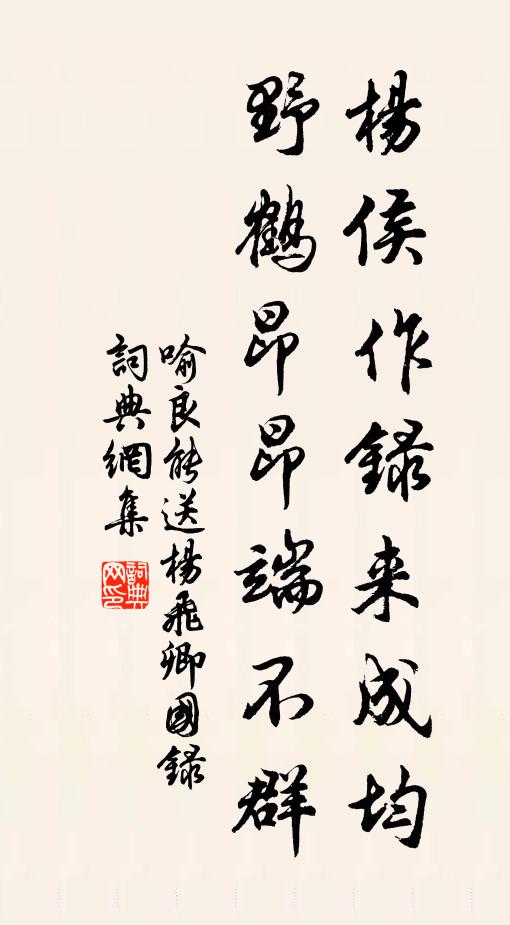 楊侯作録来成均
野鶴昂昂端不群
喻良能送楊飛卿國録
詞典網集
詞典网印